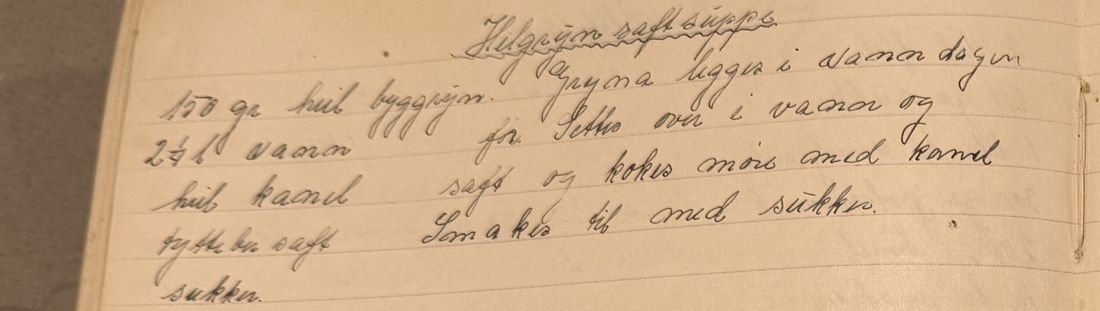 Helgryn saftsuppe
150 gr heil byggryn.
2¼ l vann
heil kanel
tyttebersaft
sukker.
Gryna legges i vann dagen
før. Settes over i vann og
saft og kokes møre med kanel
Smakes til med sukker.